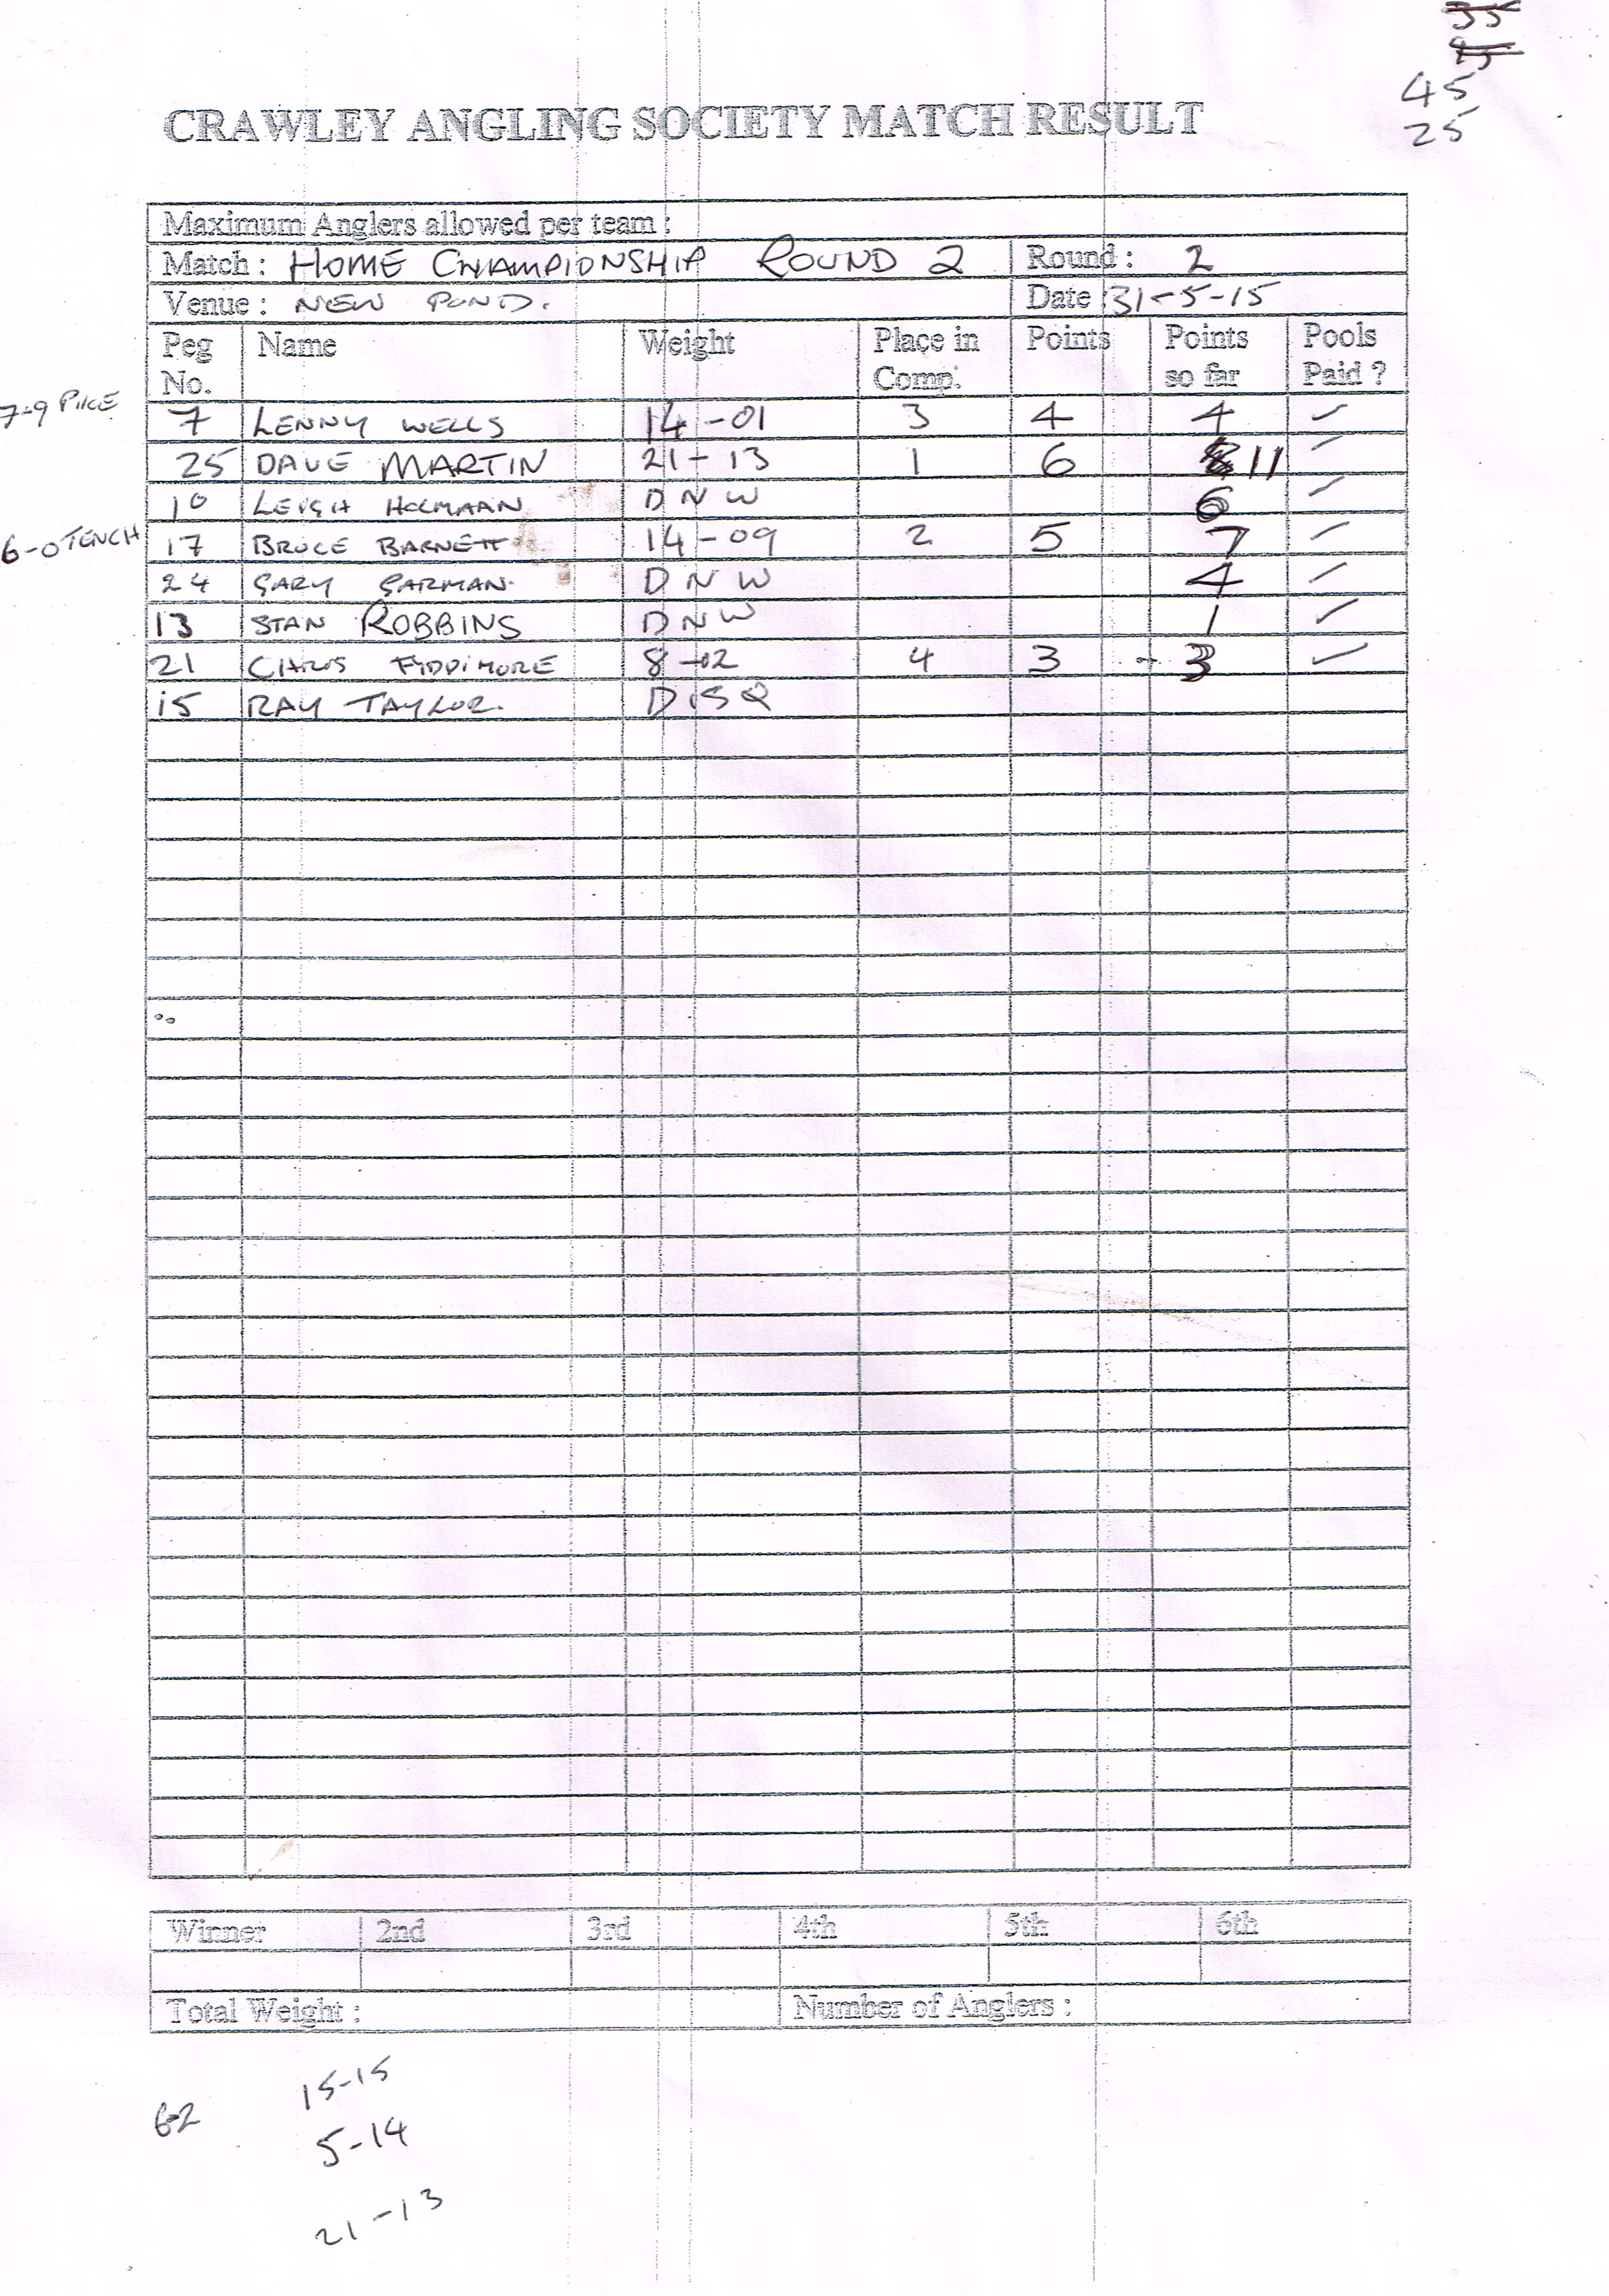 45
25
CRAWLEY ANGLING SOCIETY MATCH RESULT
Maximum Anglers allowed per team :
Match : HOME CHAMPIONSHIP ROUND 2 Round : 2
Venue : NEW POND. Date : 31-5-15
Peg No. Name Weight Place in Comp. Points Points so far Pools Paid ?
7-9 PIKE 7 LENNY WELLS 14-01 3 4 4 ✓
25 DAVE MARTIN 21-13 1 6 11 ✓
10 LEIGH HOLMAAN DNW 6 ✓
6-0 TENCH 17 BRUCE BARNETT 14-09 2 5 7 ✓
24 GARY GARMAN. DNW 4 ✓
13 STAN ROBBINS DNW 1 ✓
21 CHRIS FIDDIMORE 8-02 4 3 - 3 ✓
15 RAY TAYLOR. DISQ
Winner 2nd 3rd 4th 5th 6th
Total Weight : Number of Anglers :
15-15
6-2
5-14
21-13